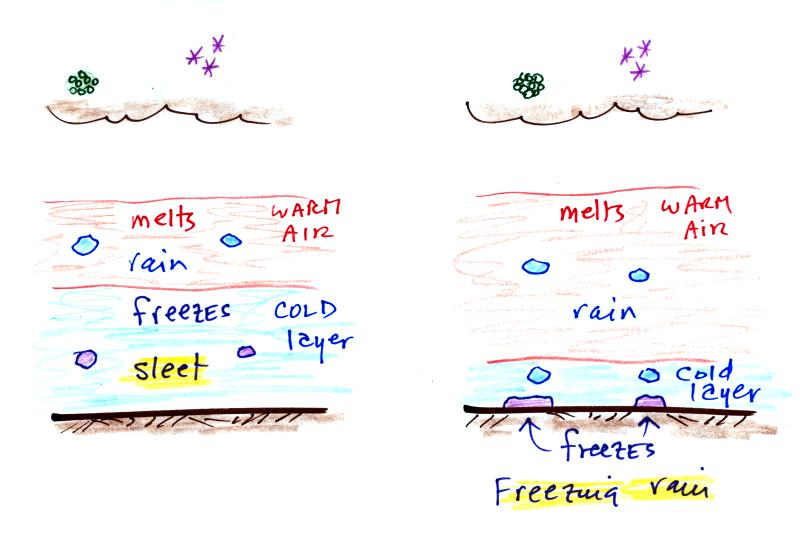 melts
WARM
AIR
rain
freezes
COLD
layer
sleet
melts
WARM
AIR
rain
cold
layer
freezes
Freezing rain